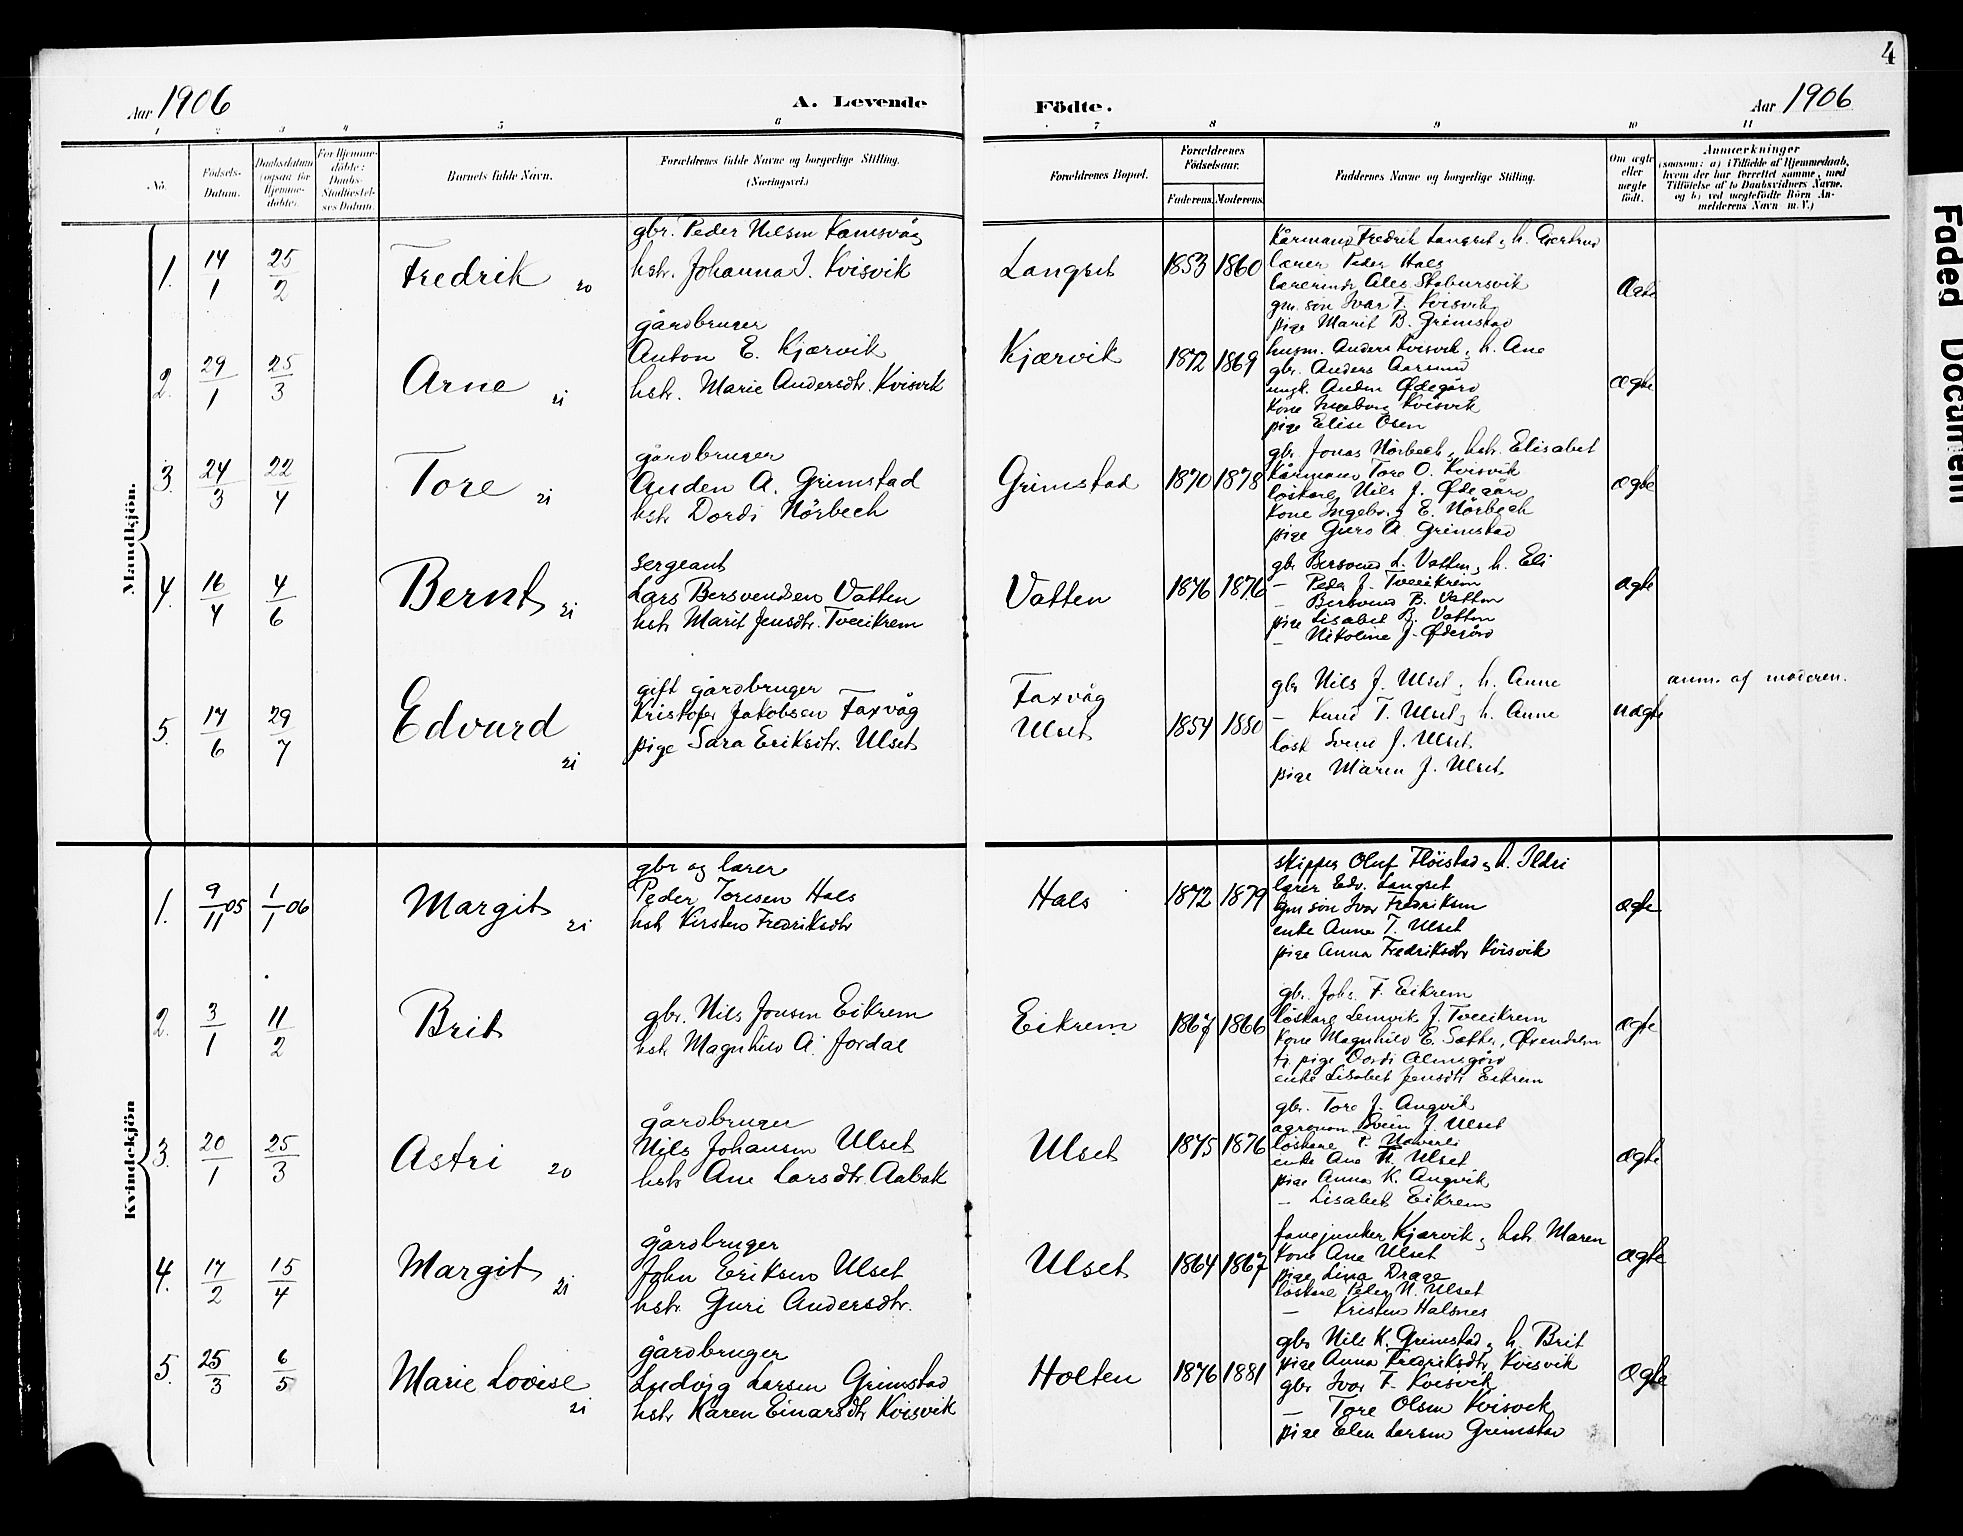 4
Aar 1906
A. Levende
Födte.
Aar 1906
1 2 3 4 5 6 7 8 9 10 11
No.
Födsels-
Datum.
Daabsdatum
(ogsaa for
Hjemme-
döbte).
For Hjemme-
döbte:
Daabs-
Stadfæstel-
ses Datum.
Barnets fulde Navn.
Forældrenes fulde Navne og borgerlige Stilling.
(Næringsvei.)
Forældrenes Bopæl.
Forældrenes
Födselsaar.
Faderens. Moderens.
Faddernes Navne og borgerlige Stilling.
Om ægte
eller
uægte
födt.
Anmærkninger
(saasom: a) i Tilfælde af Hjemmedaab,
hvem der har forrettet samme, med
Tilföielse af to Daabsvidners Navne.
og b) ved uægtefödte Börn An-
melderens Navn m. V.)
Mandkjön.
1. 14/1 25/2
Fredrik
20
gbr. Peder Nilsen Kamsvåg
hstr. Johanna I. Kvisvik
Langset
1853 1860
Kårmand Fredrik Langset, h. Gjertrud
lærer Peder Hals
lærerinde Ales Stabursvik
gm. søn Ivar F. Kvisvik
pige Marit B. Grimstad
ægte
2. 29/1 25/3
Arne
21
gårdbruger
Anton E. Kjærvik
hstr. Marie Andersdtr. Kvisvik
Kjærvik
1872 1869
husm. Anders Kvisvik, h. Ane
gbr. Anders Aarsund
ungk. Anden Ødegård
Kone Ingeborg Kvisvik
pige Elise Osen
ægte
3. 24/3 22/4
Tore
21
gårdbruger
Anden A. Grimstad
hstr Dordi Nörbech
Grimstad
1870 1878
gbr. Jonas Nörbech, hstr. Elisabet
Kårmand Tore O. Kvisvik
löskarl Nils J. Ødegård
Kone Ingebr. E. Nörbech
pige Guro A. Grimstad
ægte
4. 16/4 4/6
Bernt
21
sergeant
Lars Bersvendsen Vatten
hstr Marit Jensdtr. Tveeikrem
Vatten
1876 1876
gbr Bersvend L. Vatten, h. Eli
– Peder J. Tveeikrem
– Bersvend B. Vatten
pige Lisabet B. Vatten
– Nikoline J. Ødegård
ægte
5. 17/6 29/7
Edvard
21
gift gårdbruger
Kristofer Jakobsen Faxvåg
pige Sara Eriksdtr. Ulset
Faxvåg
Ulset
1854 1880
gbr Nils J. Ulset, h. Anne
– Knud T. Ulset, h. Anne
løsk Svend J. Ulset
pige Maren J. Ulset
uægte
anm. af moderen.
Kvindekjön
1. 9/11 05 1/1 06
Margit
21
gbr og lærer
Peder Toresen Hals
hstr Kirsten Fredriksdtr
Hals
1872 1879
skipper Oluf Flöistad, h. Ildri
lærer Edv. Langset
gm søn Ivar Fredriksen
enke Anne T. Ulset
pige Anna Fredriksdtr Kvisvik
ægte
2. 3/1 11/2
Brit
gbr. Nils Jonsen Eikrem
hstr Magnhild A. Jordal
Eikrem
1867 1866
gbr. Johs. F. Eikrem
löskarl Lemvik J. Tveeikrem
Kone Magnhild E. Sætter, Øxendalen
tj. pige Dordi Almsgård
enke Lisabet Jensdtr Eikrem
ægte
3. 20/1 25/3
Astri
20
gårdbruger
Nils Johansen Ulset
hstr Ane Larsdtr. Aabak
Ulset
1875 1876
gbr. Tore J. Angvik
agronom Svein J. Ulset
löskarl
enke Ane Ulset
pige Anna K. Angvik
– Lisabet Eikrem
ægte
4. 17/2 15/4
Margit
21
gårdbruger
John Eriksen Ulset
hstr. Guri Andersdtr.
Ulset
1864 1867
fanejunker Kjærvik, hstr Maren
Kone Ane Ulset
pige Lina Drage
löskarl Peder N. Ulset
– Kristen Halsnes
ægte
5. 25/3 6/5
Marie Lovise
21
gårdbruger
Ludvig Larsen Grimstad
hstr Karen Einarsdtr Kvisvik
Holten
1876 1881
gbr Nils K. Grimstad, h. Brit
pige Anna Fredriksdtr Kvisvik
gbr Ivar F. Kvisvik
– Tore Olsen Kvisvik
pige Elen Larsen Grimstad
Ægte
Faded Document